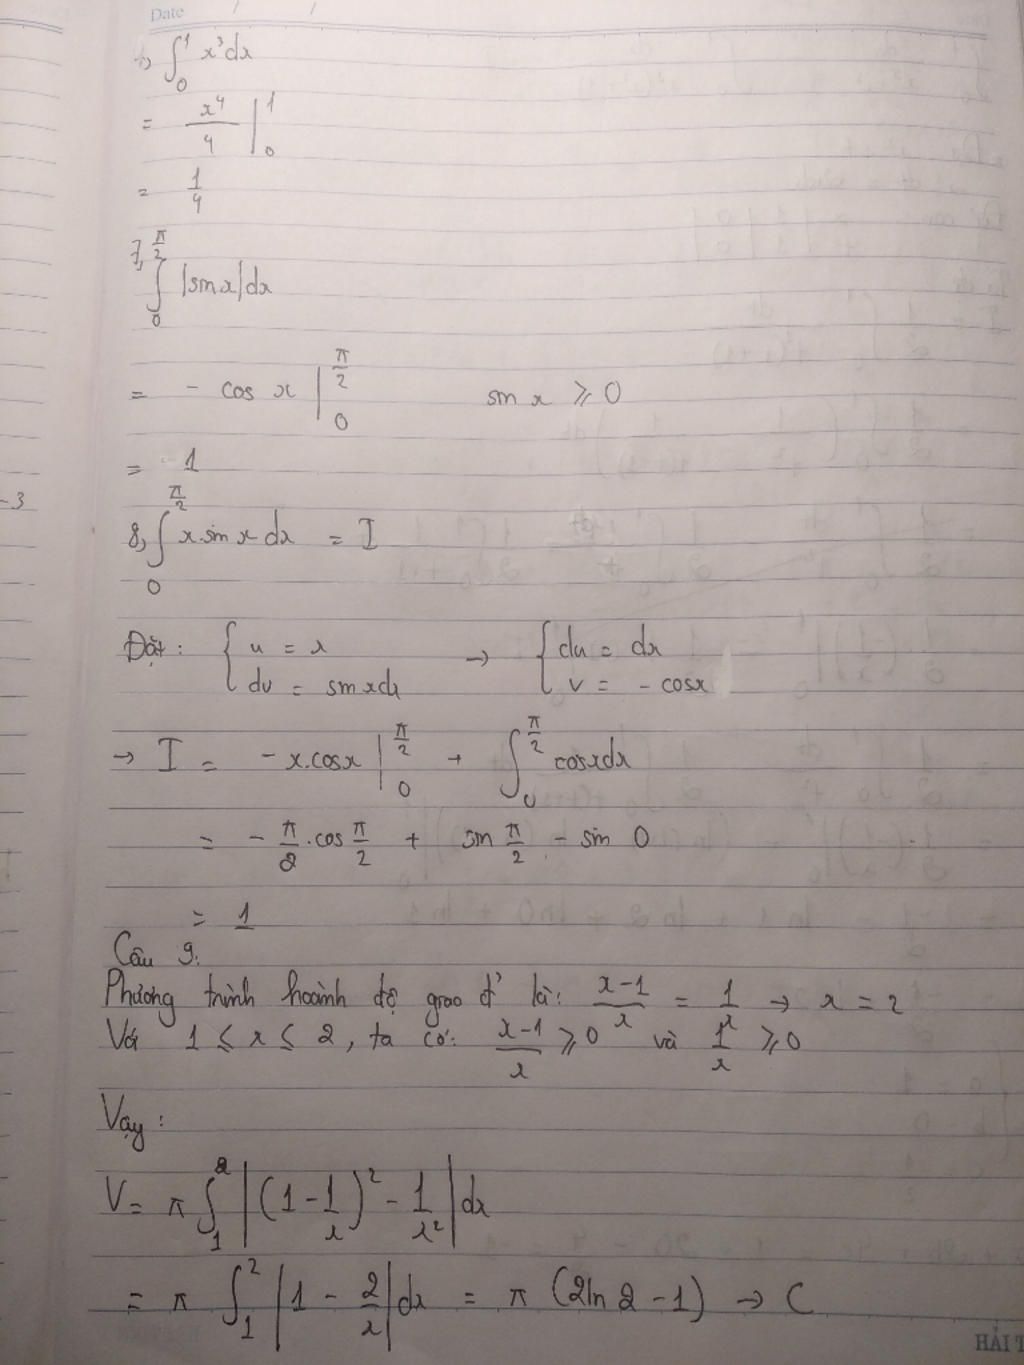 Date / /
∫₀¹ x³dx
= x⁴/4 |₀¹
= 1/4
7, ∫₀^(π/2) |sinx|dx
= - cos x |₀^(π/2) sin x ⩾ 0
= 1
-3
8, ∫₀^(π/2) x.sin x dx = I
Đặt: { u = x → { du = dx
dv = sinxdx v = - cosx
→ I = -x.cosx |₀^(π/2) + ∫₀^(π/2) cosxdx
= - π/2 . cos π/2 + sin π/2 - sin 0
= 1
Câu 9:
Phương trình hoành độ giao đ' là: (x-1)/x = 1/x → x = 2
Với 1 ≤ x ≤ 2, ta có: (x-1)/x ⩾ 0 và 1/x ⩾ 0
Vậy:
V = π ∫₁² |(1 - 1/x)² - 1/x²| dx
= π ∫₁² |1 - 2/x| dx = π (2ln2 - 1) → C
HẢI T